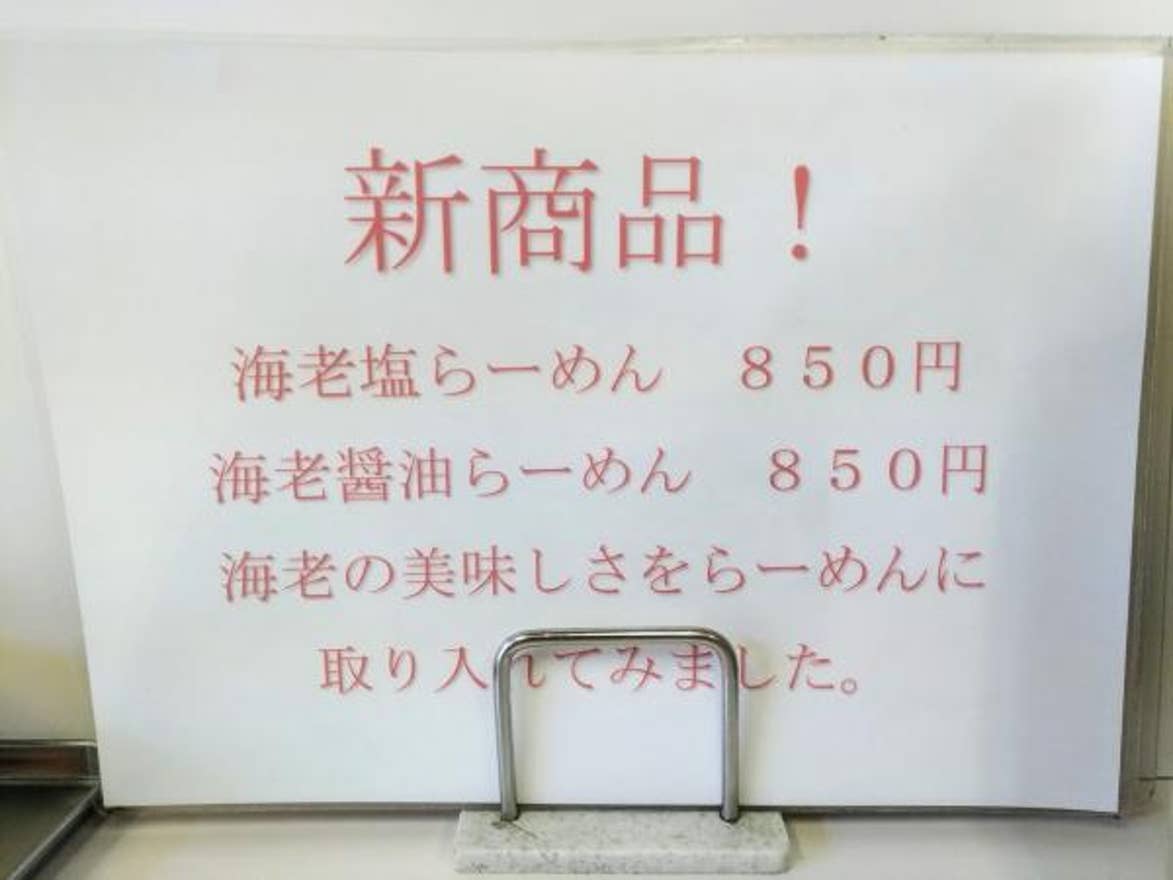 新商品！
海老塩らーめん　８５０円
海老醤油らーめん　８５０円
海老の美味しさをらーめんに
取り入れてみました。